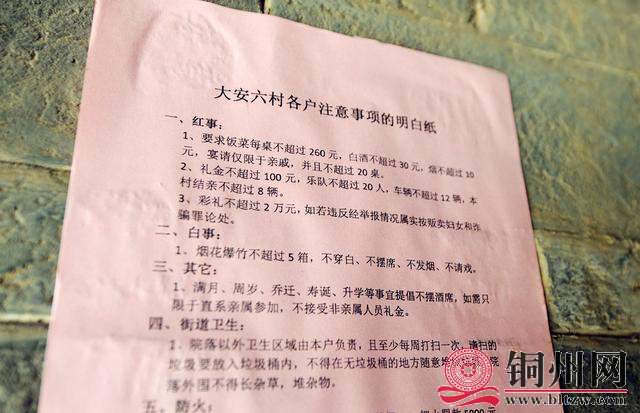 大安六村各户注意事项的明白纸
一、红事：
1、要求饭菜每桌不超过 260 元，白酒不超过 30 元，烟不超过 10
元，宴请仅限于亲戚，并且不超过 20 桌。
2、礼金不超过 100 元，乐队不超过 20 人，车辆不超过 12 辆，本
村结亲不超过 8 辆。
3、彩礼不超过 2 万元，如若违反经举报情况属实按贩卖妇女和诈
骗罪论处。
二、白事：
1、烟花爆竹不超过 5 箱，不穿白、不摆席、不发烟、不请戏。
三、其它：
1、满月、周岁、乔迁、寿诞、升学等事宜提倡不摆酒席，如需只
限于直系亲属参加，不接受非亲属人员礼金。
四、街道卫生：
1、院落以外卫生区域由本户负责，且至少每周打扫一次，清扫的
垃圾要放入垃圾桶内，不得在无垃圾桶的地方随意堆放垃圾，院
落外围不得长杂草，堆杂物。
五、防火：
铜州网
www.bltzw.com